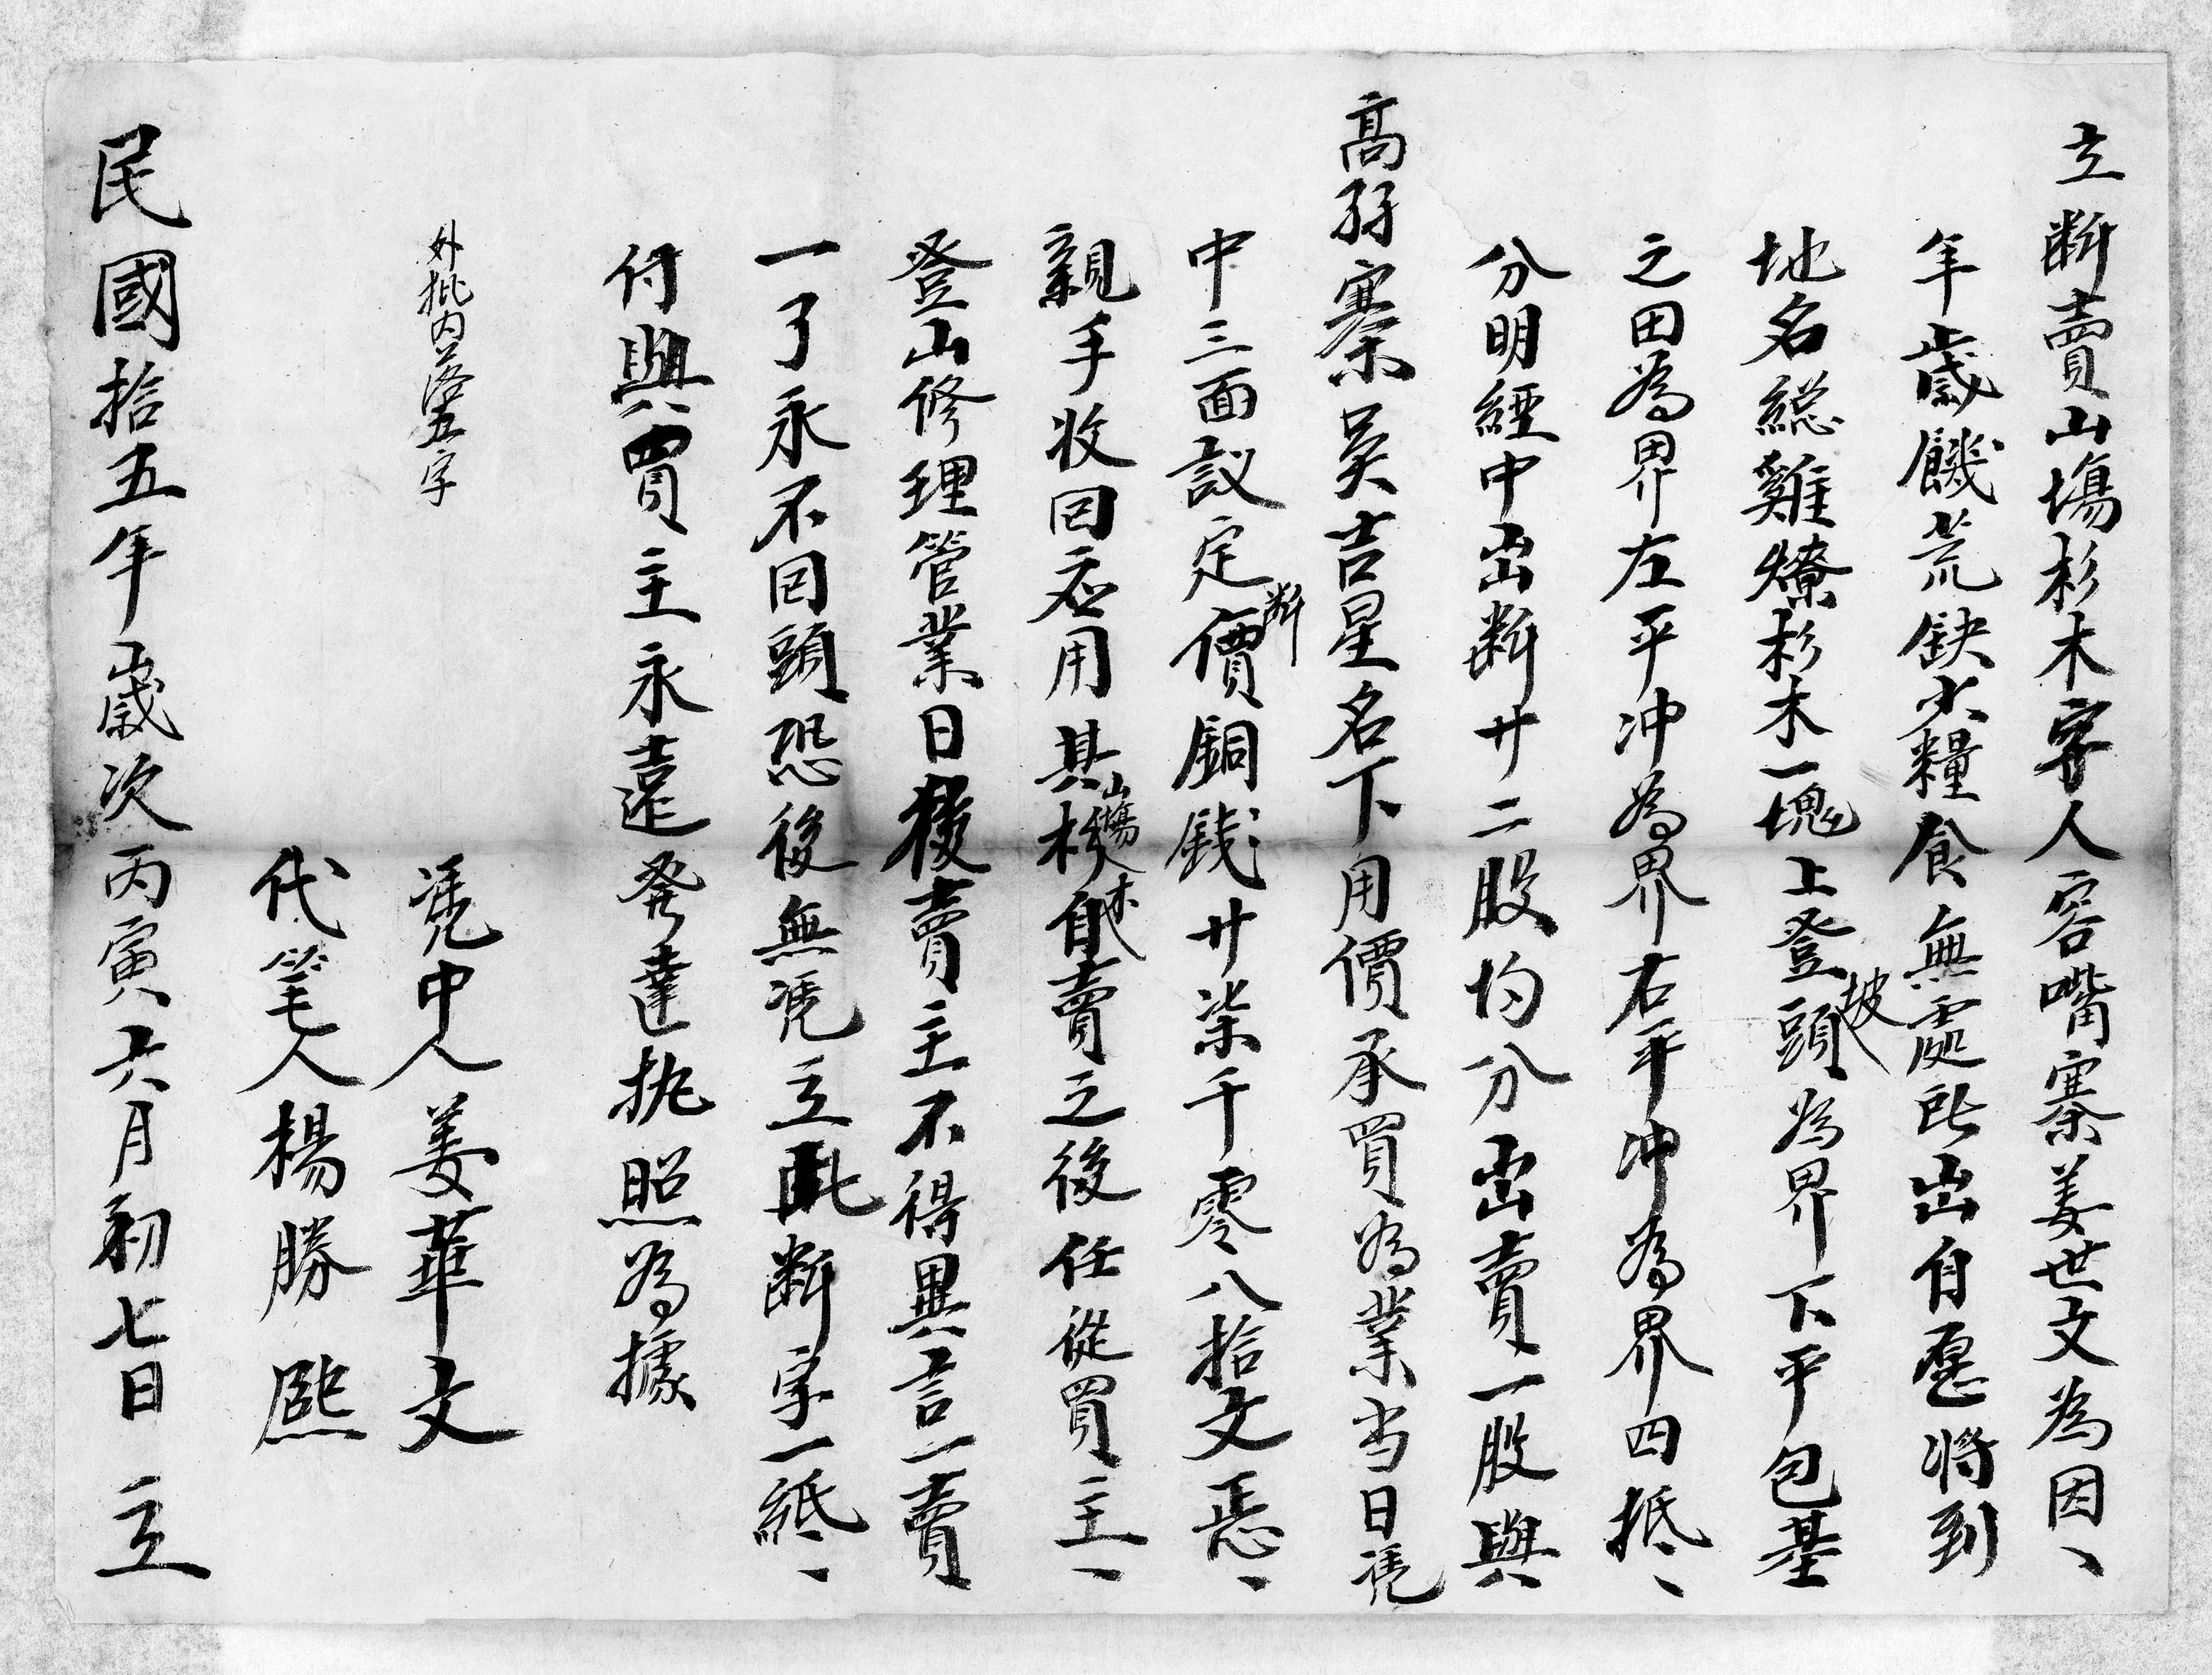 立斷賣山塲杉木字人容嘴寨姜世文為因、
年歲饑荒缺少糧食無處所出自愿將到
地名總雞燎杉木一塊上登坡頭為界下平包基
之田為界左平冲為界右平冲為界四抵、
分明經中出斷廿二股均分出賣一股與
高孖寨吳吉星名下用價承買為業当日凴
中三面議定斷價銅錢廿柒千零八拾文恁、
親手收回應用其山塲杉木自賣之後任從買主、
登山修理管業日後賣主不得異言一賣
一了永不回頭恐後無凴立此斷字一紙、
付與買主永遠發達执照為據
外批内落五字
凴中人姜華文
代筆人楊勝熙
民國拾五年歲次丙寅六月初七日立